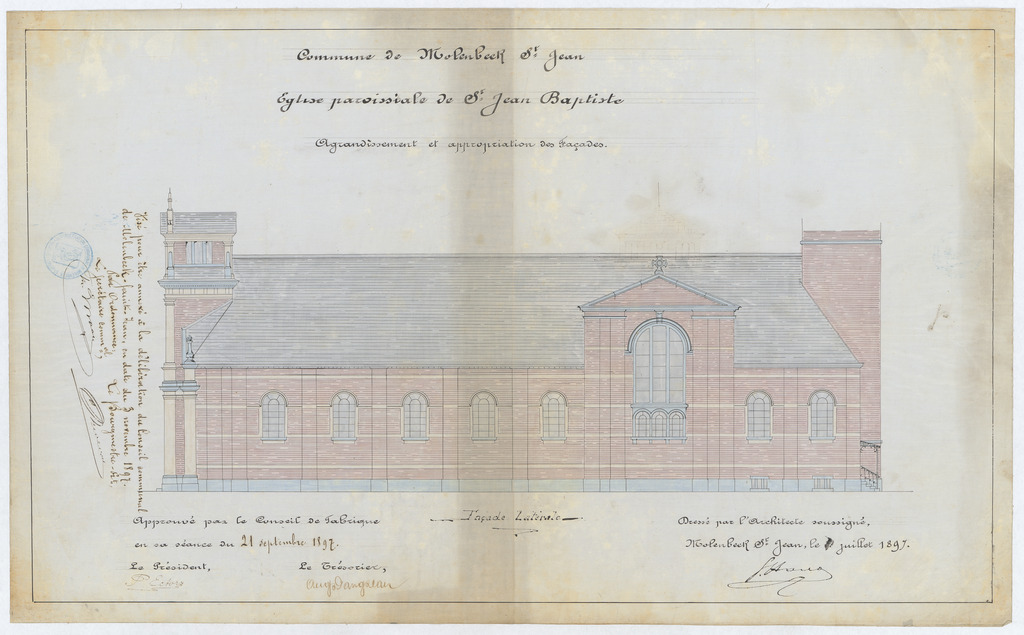 Commune de Molenbeek St Jean
Eglise paroissiale de St Jean Baptiste
Agrandissement et appropriation des Façades.
Visé pour être annexé à la délibération du Conseil communal
de Molenbeek-Saint-Jean, en date du 3 novembre 1897.
Par Ordonnance,
Le Secrétaire comm al
Le Bourgmestre
Façade Latérale
Approuvé par le Conseil de Fabrique
en sa séance du 21 septembre 1897.
Le Président,
Le Trésorier,
Dressé par l'Architecte soussigné,
Molenbeek St Jean, le juillet 1897.